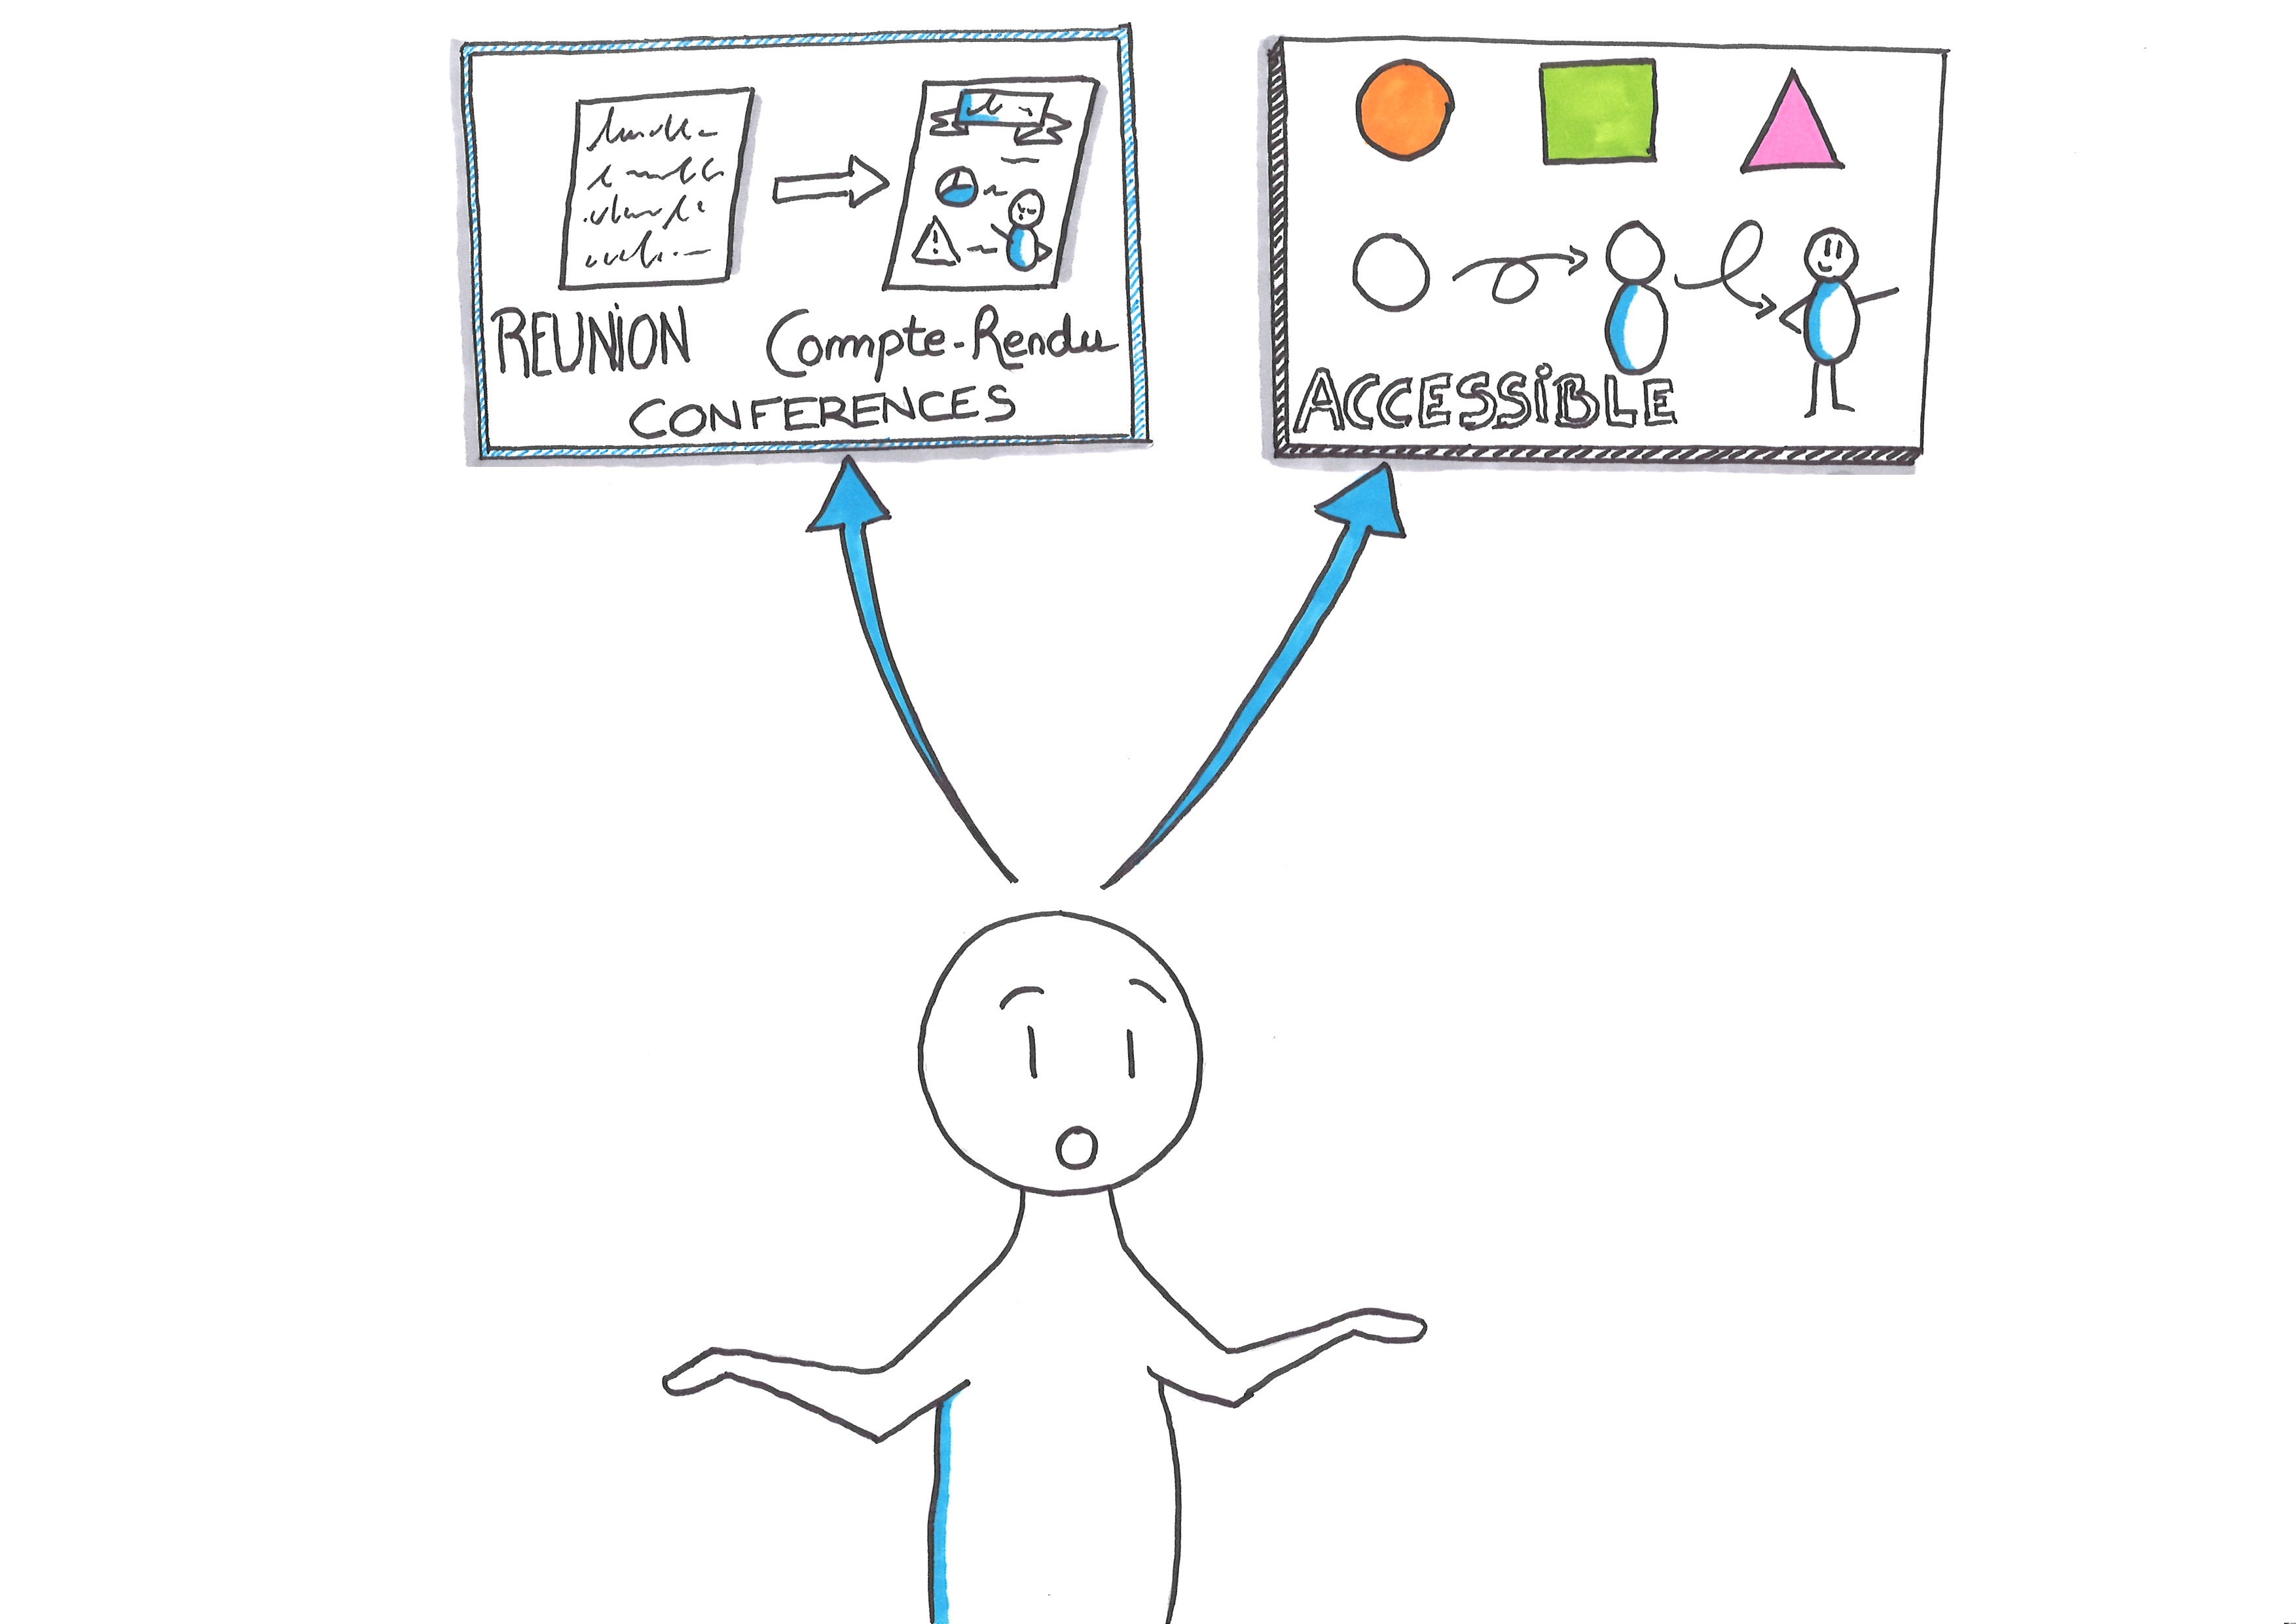 REUNION
Compte-Rendu
CONFERENCES
ACCESSIBLE